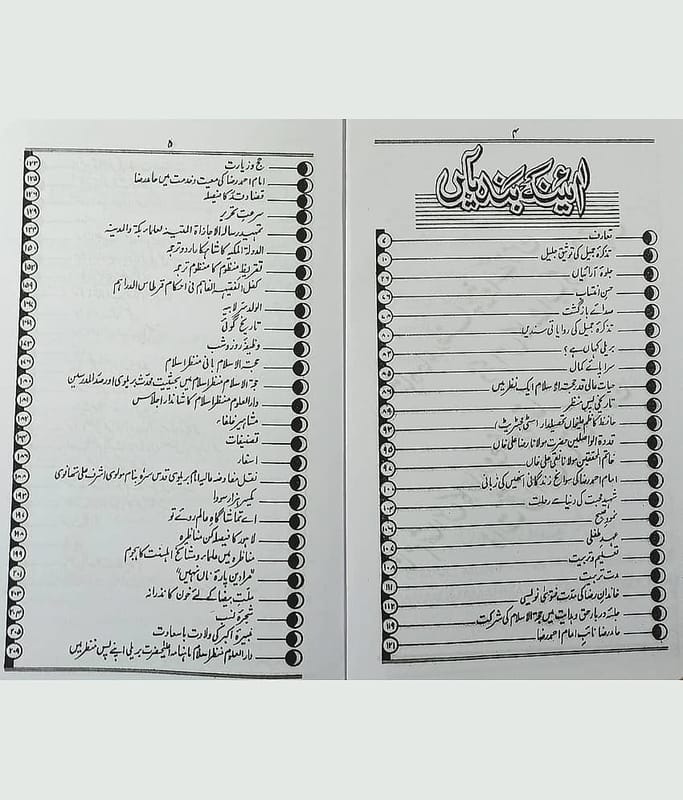 ۴
آئینہ بندیاں
تعارف ۷
تذکرۂ جمیل کی توثیق جلیل ۱۰
جلوہ آرائیاں ۲۶
حسن انتساب ۴۶
صدائے بازگشت
تذکرۂ جمیل کی روایاتی سندیں ۸۰
بریلی کہاں ہے؟ ۸۲
سراپائے کمال ۸۵
حیات عالی قدر حجۃ الاسلام ایک نظر میں ۸۶
تاریخی پس منظر ۸۹
حافظ کاظم علیخاں تحصیلدار (سٹی مجسٹریٹ) ۹۳
قدوۃ الواصلین حضرت مولانا رضا علی خاں ۹۵
خاتم المحققین مولانا نقی علی خاں ۹۸
امام احمد رضا کی سوانح زندگانی انھیں کی زبانی ۱۰۰
شہید محبت کی دنیا سے رحلت ۱۰۳
نمود صبح ۱۰۶
عہد طفلی ۱۰۷
تعلیم و تربیت ۱۰۸
مدت تربیت ۱۱۱
خاندان رضا کی مدت فتویٰ نویسی ۱۱۳
جلسۂ دربار حق و ہدایت میں حجۃ الاسلام کی شرکت ۱۱۹
حامد رضا نائب امام احمد رضا ۱۲۱
۵
حج و زیارت ۱۲۳
امام احمد رضا کی معیت و خدمت میں حامد رضا ۱۲۵
کا فیصلہ ۱۲۶
سرعت تحریر ۱۲۹
تمہید رسالہ الاجازاۃ المتینہ لعلماء بکۃ والمدینہ ۱۳۲
الدولۃ المکیہ کا شاہکار اردو ترجمہ ۱۵۰
تقریظ منظوم کا منظوم ترجمہ ۱۵۳
کفل الفقیہ الفاہم فی احکام قرطاس الدراہم ۱۵۹
الولد سر لابیہ
تاریخ گوئی
وظیفۂ روز و شب
حجۃ الاسلام بانی منظر اسلام
حجۃ الاسلام منظر اسلام میں بحیثیت محدث بریلوی اور صدر المدرسین ۱۸۰
دارالعلوم منظر اسلام کا شاندار اجلاس ۱۸۱
مشاہیر خلفاء
تصنیفات
اسفار
نقل مفاوضہ عالیہ امام بریلوی قدس سرہ بنام مولوی اشرف علی تھانوی
کیسر ہزار سودا ۱۹۳
اے تماشا گاہ عالم روئے تو
لاہور کا فیصلہ کن مناظرہ
مناظرہ میں علماء و مشائخ اہلسنت کا ہجوم ۱۹۹
"مرا دین پارۂ ناں نہیں"
ملت بیضا کے لئے خون کا نذرانہ
شجرۂ نسب
نبیرۂ اکبر کی ولادت باسعادت ۲۰۵
دارالعلوم منظر اسلام ماہنامہ اعلیٰحضرت بریلی اپنے پس منظر میں ۲۰۹